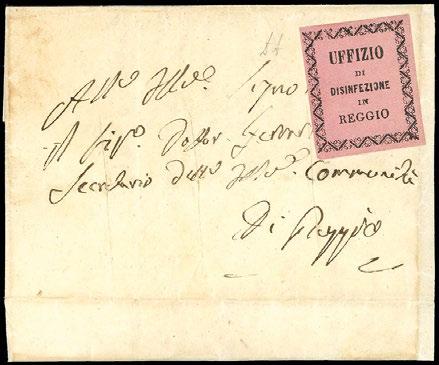 UFFIZIO
DI
DISINFEZIONE
IN
REGGIO
All.mo Ill.mo Signo
Il Sig.r Dottor
Secretario dell' Ill.ma Communità
Di Reggio